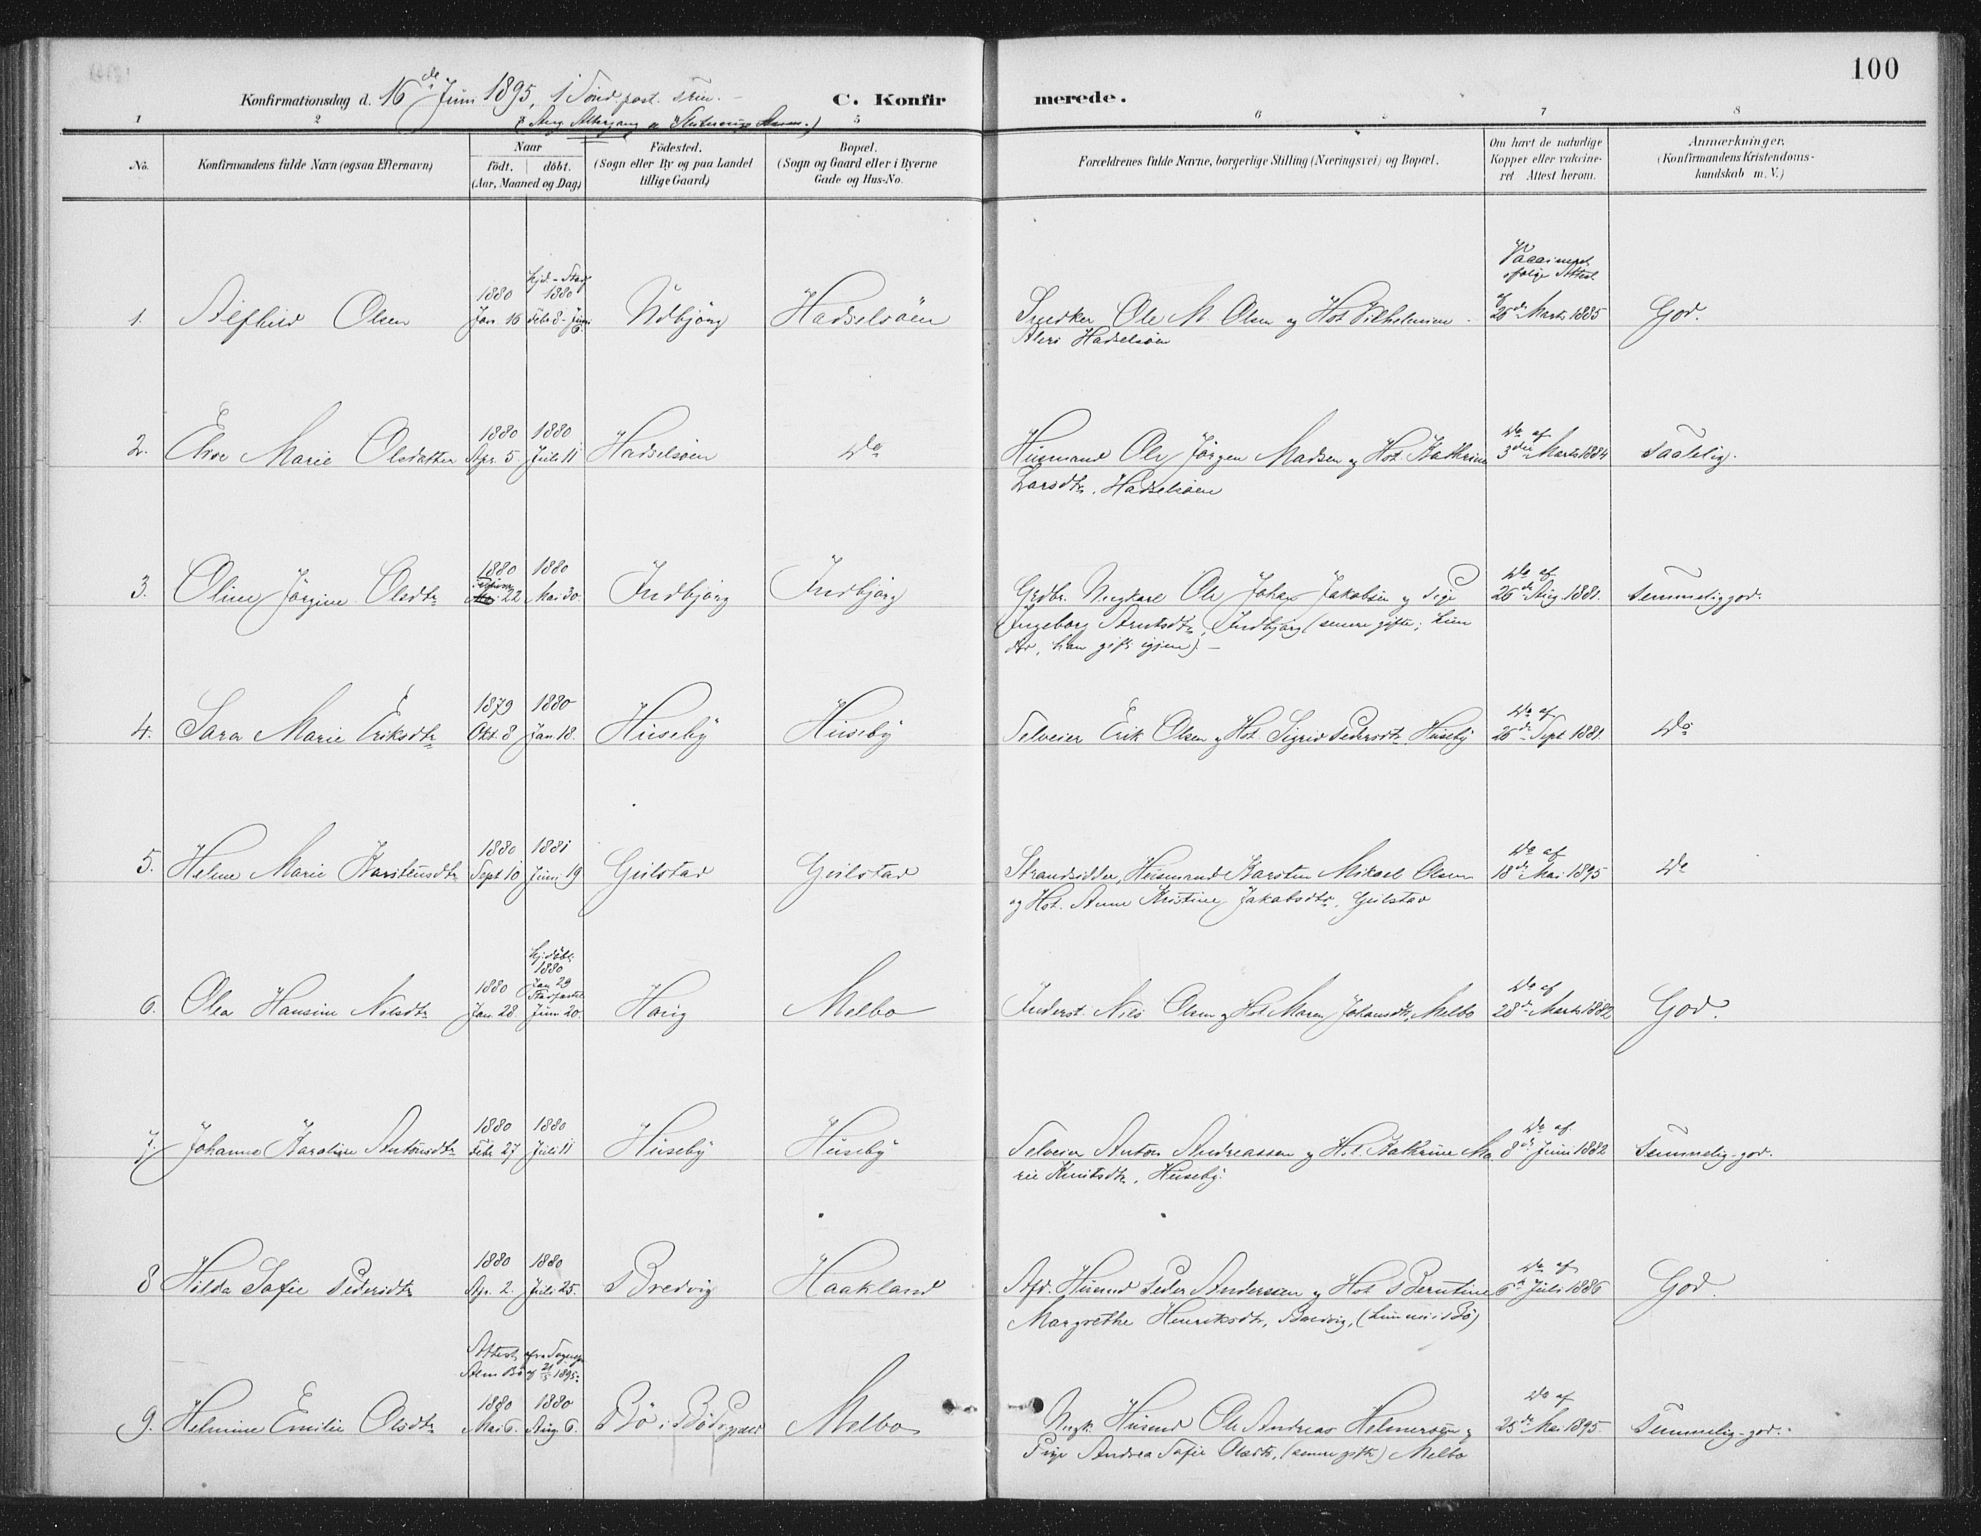 100
Konfirmationsdag d. 16de Juni 1895, 1 Sønd. post. trin. C. Konfirmerede.
1 2 5 6 7 8
No. Konfirmandens fulde Navn (ogsaa Efternavn) Naar født. døbt. (Aar, Maaned og Dag) Fødested. (Sogn eller By og paa Landet tillige Gaard) Bopæl. (Sogn og Gaard eller i Byerne Gade og Hus-No. Forældrenes fulde Navne, borgerlige Stilling (Næringsvei) og Bopæl. Om havt de naturlige Kopper eller vakcineret Attest herom. Anmærkninger. (Konfirmandens Kristendomskundskab m. V.)
1. Alfhild Olsen 1880 Jan. 16 1880 Febr 8 - Juni 6 Hadseløen Ole M. Olsen og Hst Vilhelmine Hadseløen Vaccineret ifølge Attest af 26de Marts 1885 God.
2. Marie Olsdatter 1880 Apr. 5. 1880 Juli 11 Hadseløen do Husmand Ole Jørgen Madsen og Hst. Kathrine Larsdtr. Hadseløen do af 3die Marts 1884 Taalelig.
3. Oline Jørgine Olsdtr 1880 22 1880 Mai 30. Indbjørg Indbjørg Ungkarl Ole Johan Jakobsen og Pige
Ingeborg Arntsdtr, Indbjørg (senere gifte; hun
død, han gift igjen). do af 26de Aug. 1881. Temmelig god.
4. Sara Marie Eriksdtr 1879 Okt. 8 1880 Jan 18. Huseby Huseby Selveier Erik Olsen og Hst. Sigrid Pedersdtr, Huseby do af 26de Sept 1881. do
5. Marie Karstensdtr 1880 Sept 10 1881 Juni 19 Gulstad Gulstad Strandsidder, Husmand Karsten Mikael Olsen
og Hst. Anne Kristine Jakobsdtr, Gulstad do af 18de Mai 1895 do
6. Olea Hansine Nilsdtr 1880 Jan. 28. Hj.døbt 1880 Jan 29 Juni 20. Haug Melbo Inderst. Nils Olsen og Hst Maren Johansdtr, Melbo do af 28de Marts 1882 God.
7. Johanna Karoline Antonsdtr 1880 Febr. 27 1880 Juli 11 Huseby Huseby Selveier Anton Andreassen og Hst. Kathrine Marie Knutsdtr, Huseby. do af 8de Juni 1882 Temmelig-god.
8 Hilda Safie Pedersdtr 1880 Apr. 2. 1880 Juli 25. Bredvig Haakland Afd. Husmd Peder Anderssen og Hst Berntine
Margrethe Henriksdtr, Bredvig, do af 6te Juli 1886 God.
9. Helmine Emilie Olsdtr 1880 Mai 6. 1880 Aug. 6. Bø i Bø Melbo Ungk. Husmd Ole Andreas Helmersen og
Pige Andrea Safie Olsdtr, (senere gifte) Melbo do af 25de Mai 1895. Temmelig-god.